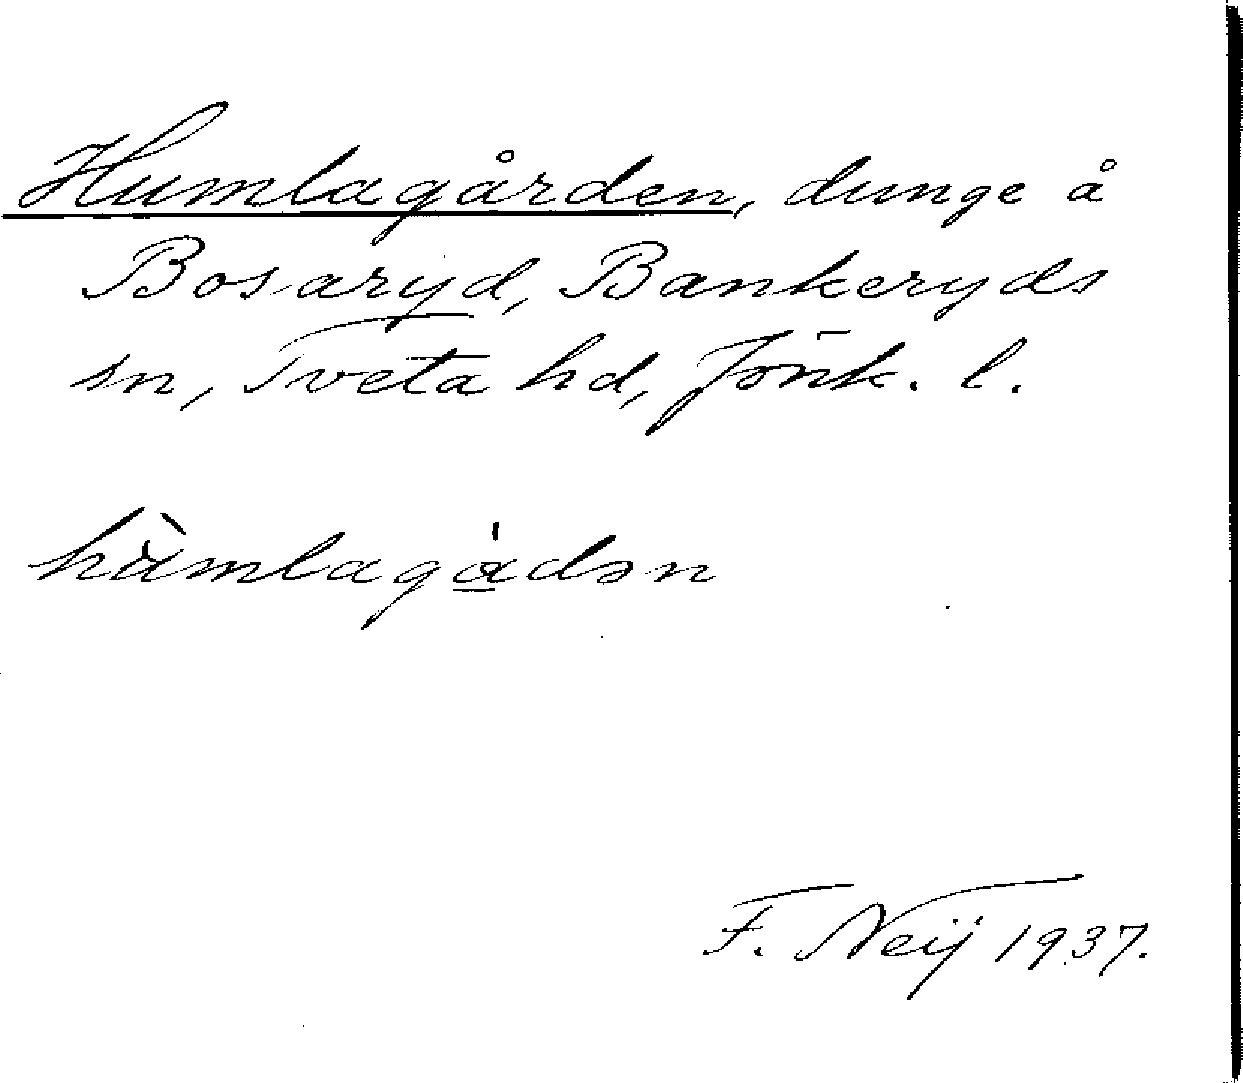 Humlagården, dunge å
Bosaryd, Bankeryds
sn, Tveta hd, Jönk. l.
hùmlagådən
F. Neij 1937.